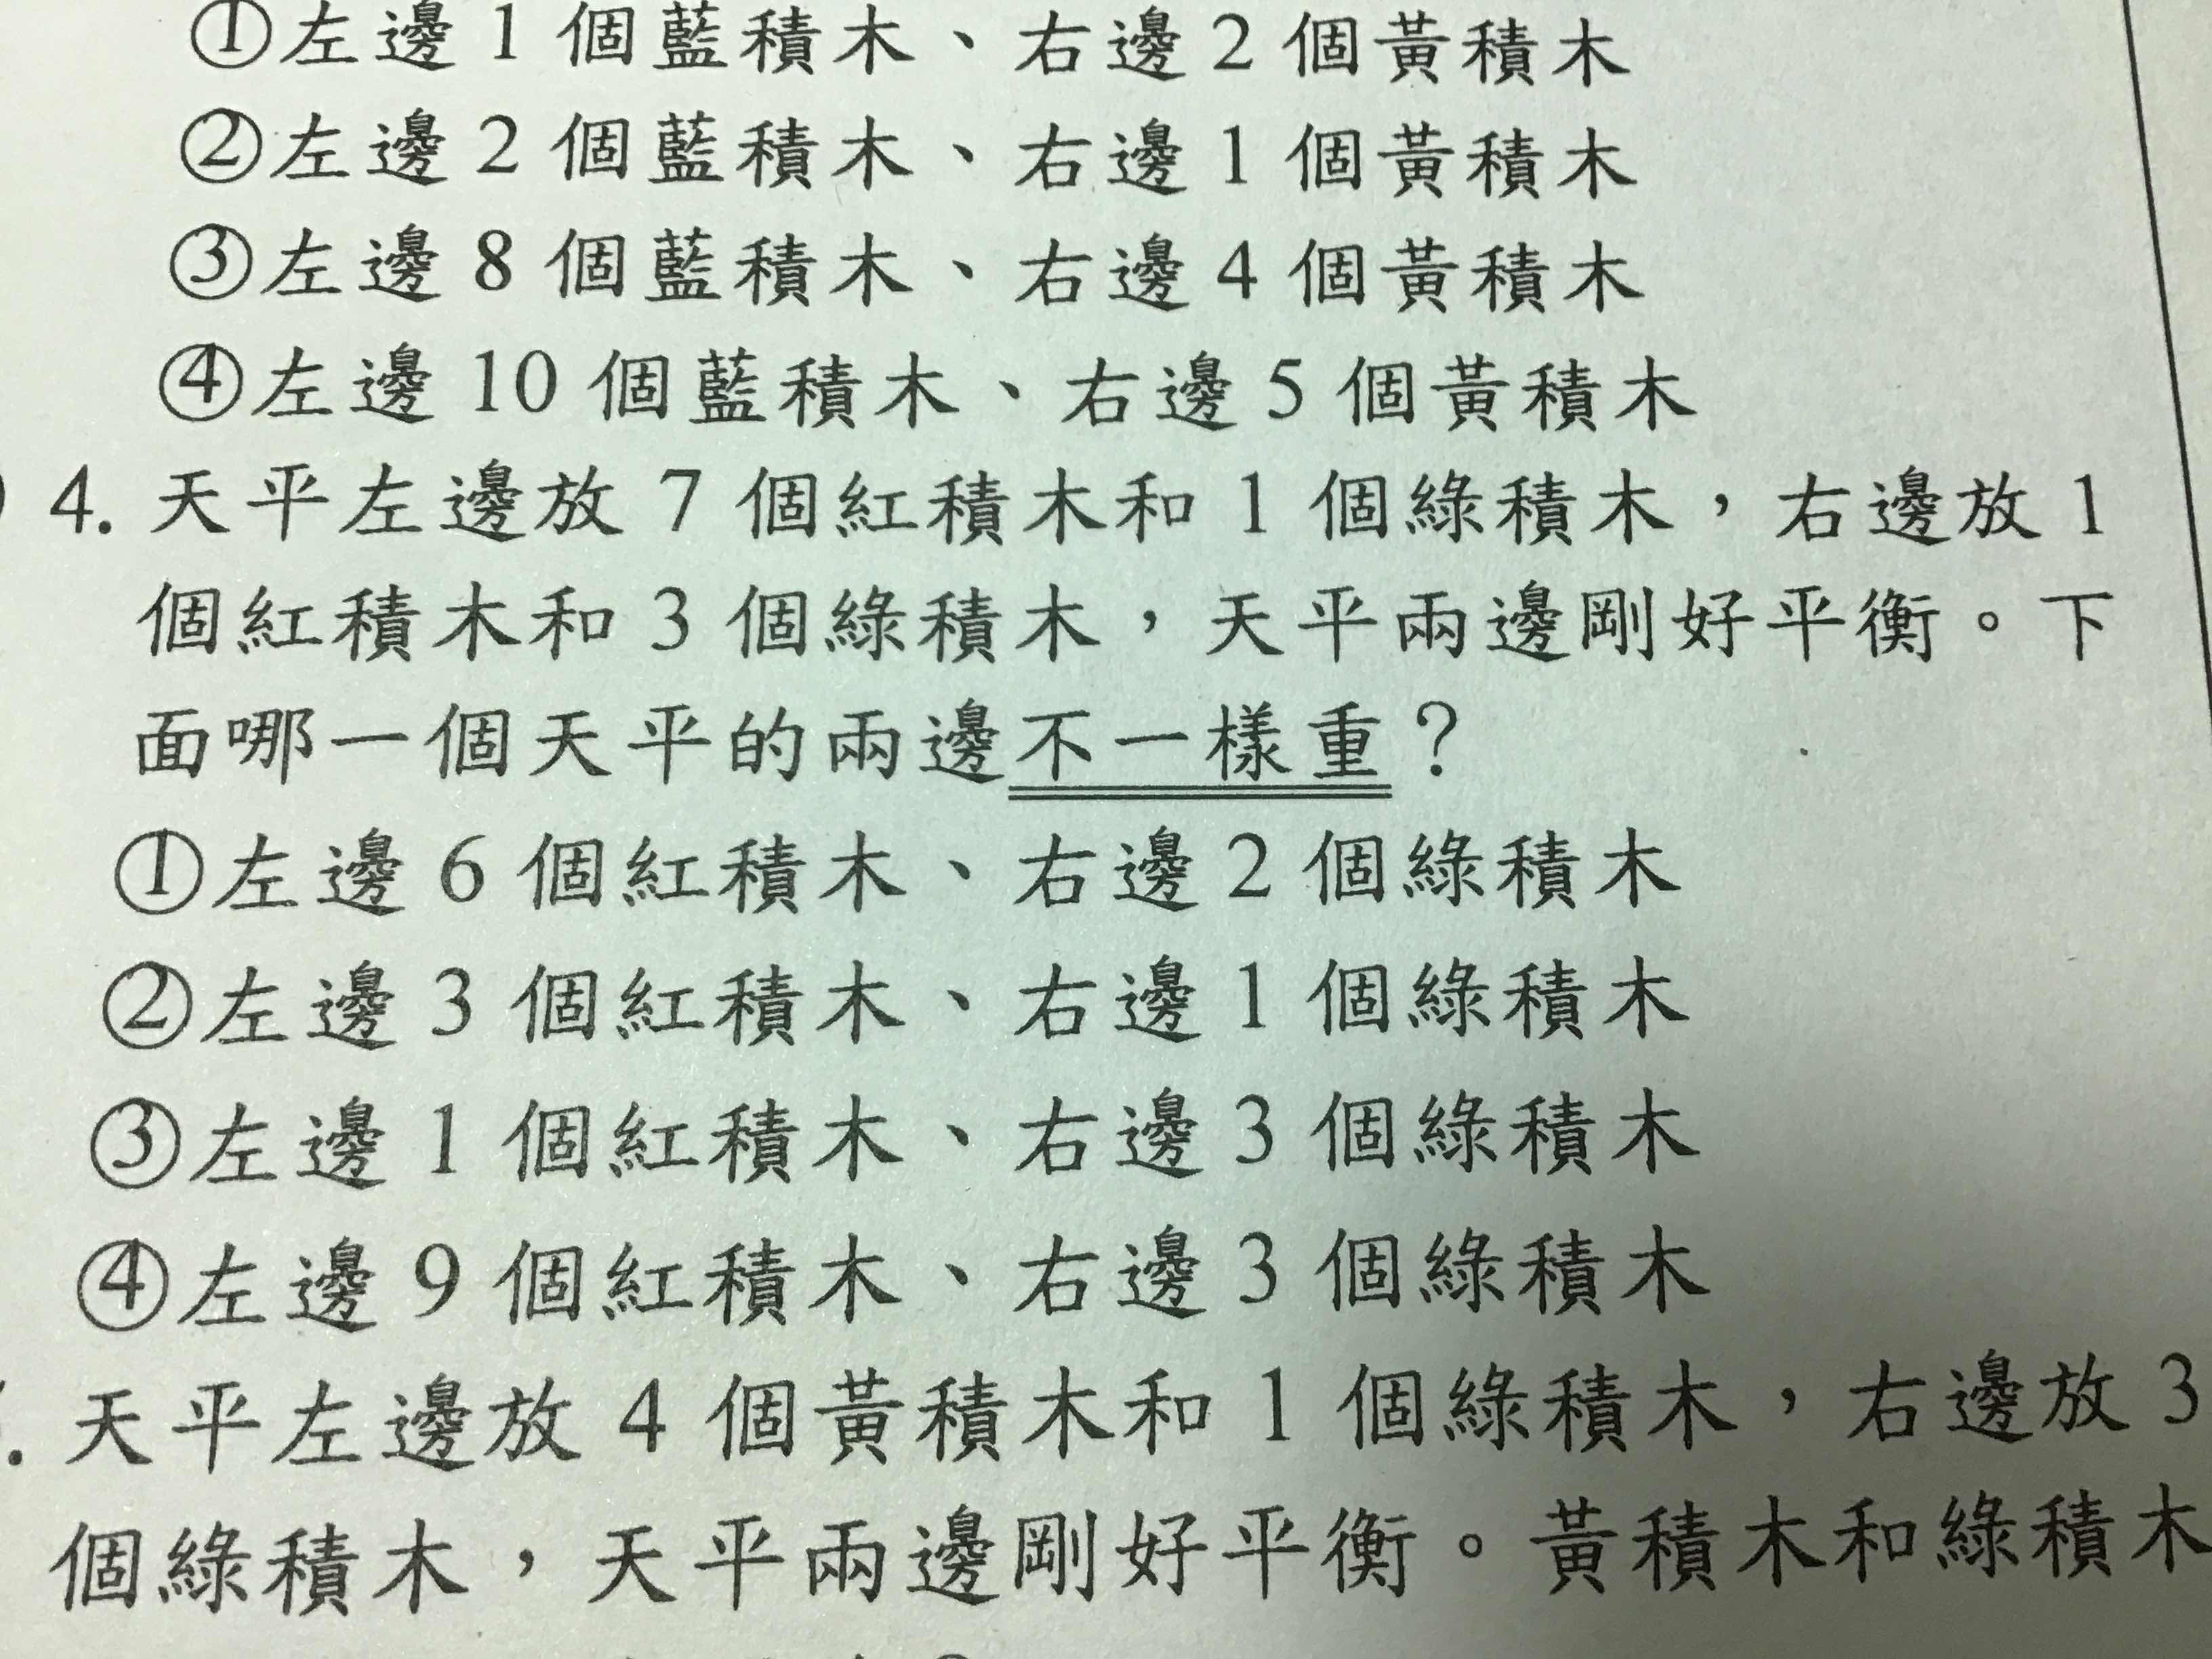 ①左邊1個藍積木、右邊2個黃積木
②左邊2個藍積木、右邊1個黃積木
③左邊8個藍積木、右邊4個黃積木
④左邊10個藍積木、右邊5個黃積木
4. 天平左邊放7個紅積木和1個綠積木，右邊放1
個紅積木和3個綠積木，天平兩邊剛好平衡。下
面哪一個天平的兩邊不一樣重？
①左邊6個紅積木、右邊2個綠積木
②左邊3個紅積木、右邊1個綠積木
③左邊1個紅積木、右邊3個綠積木
④左邊9個紅積木、右邊3個綠積木
. 天平左邊放4個黃積木和1個綠積木，右邊放3
個綠積木，天平兩邊剛好平衡。黃積木和綠積木